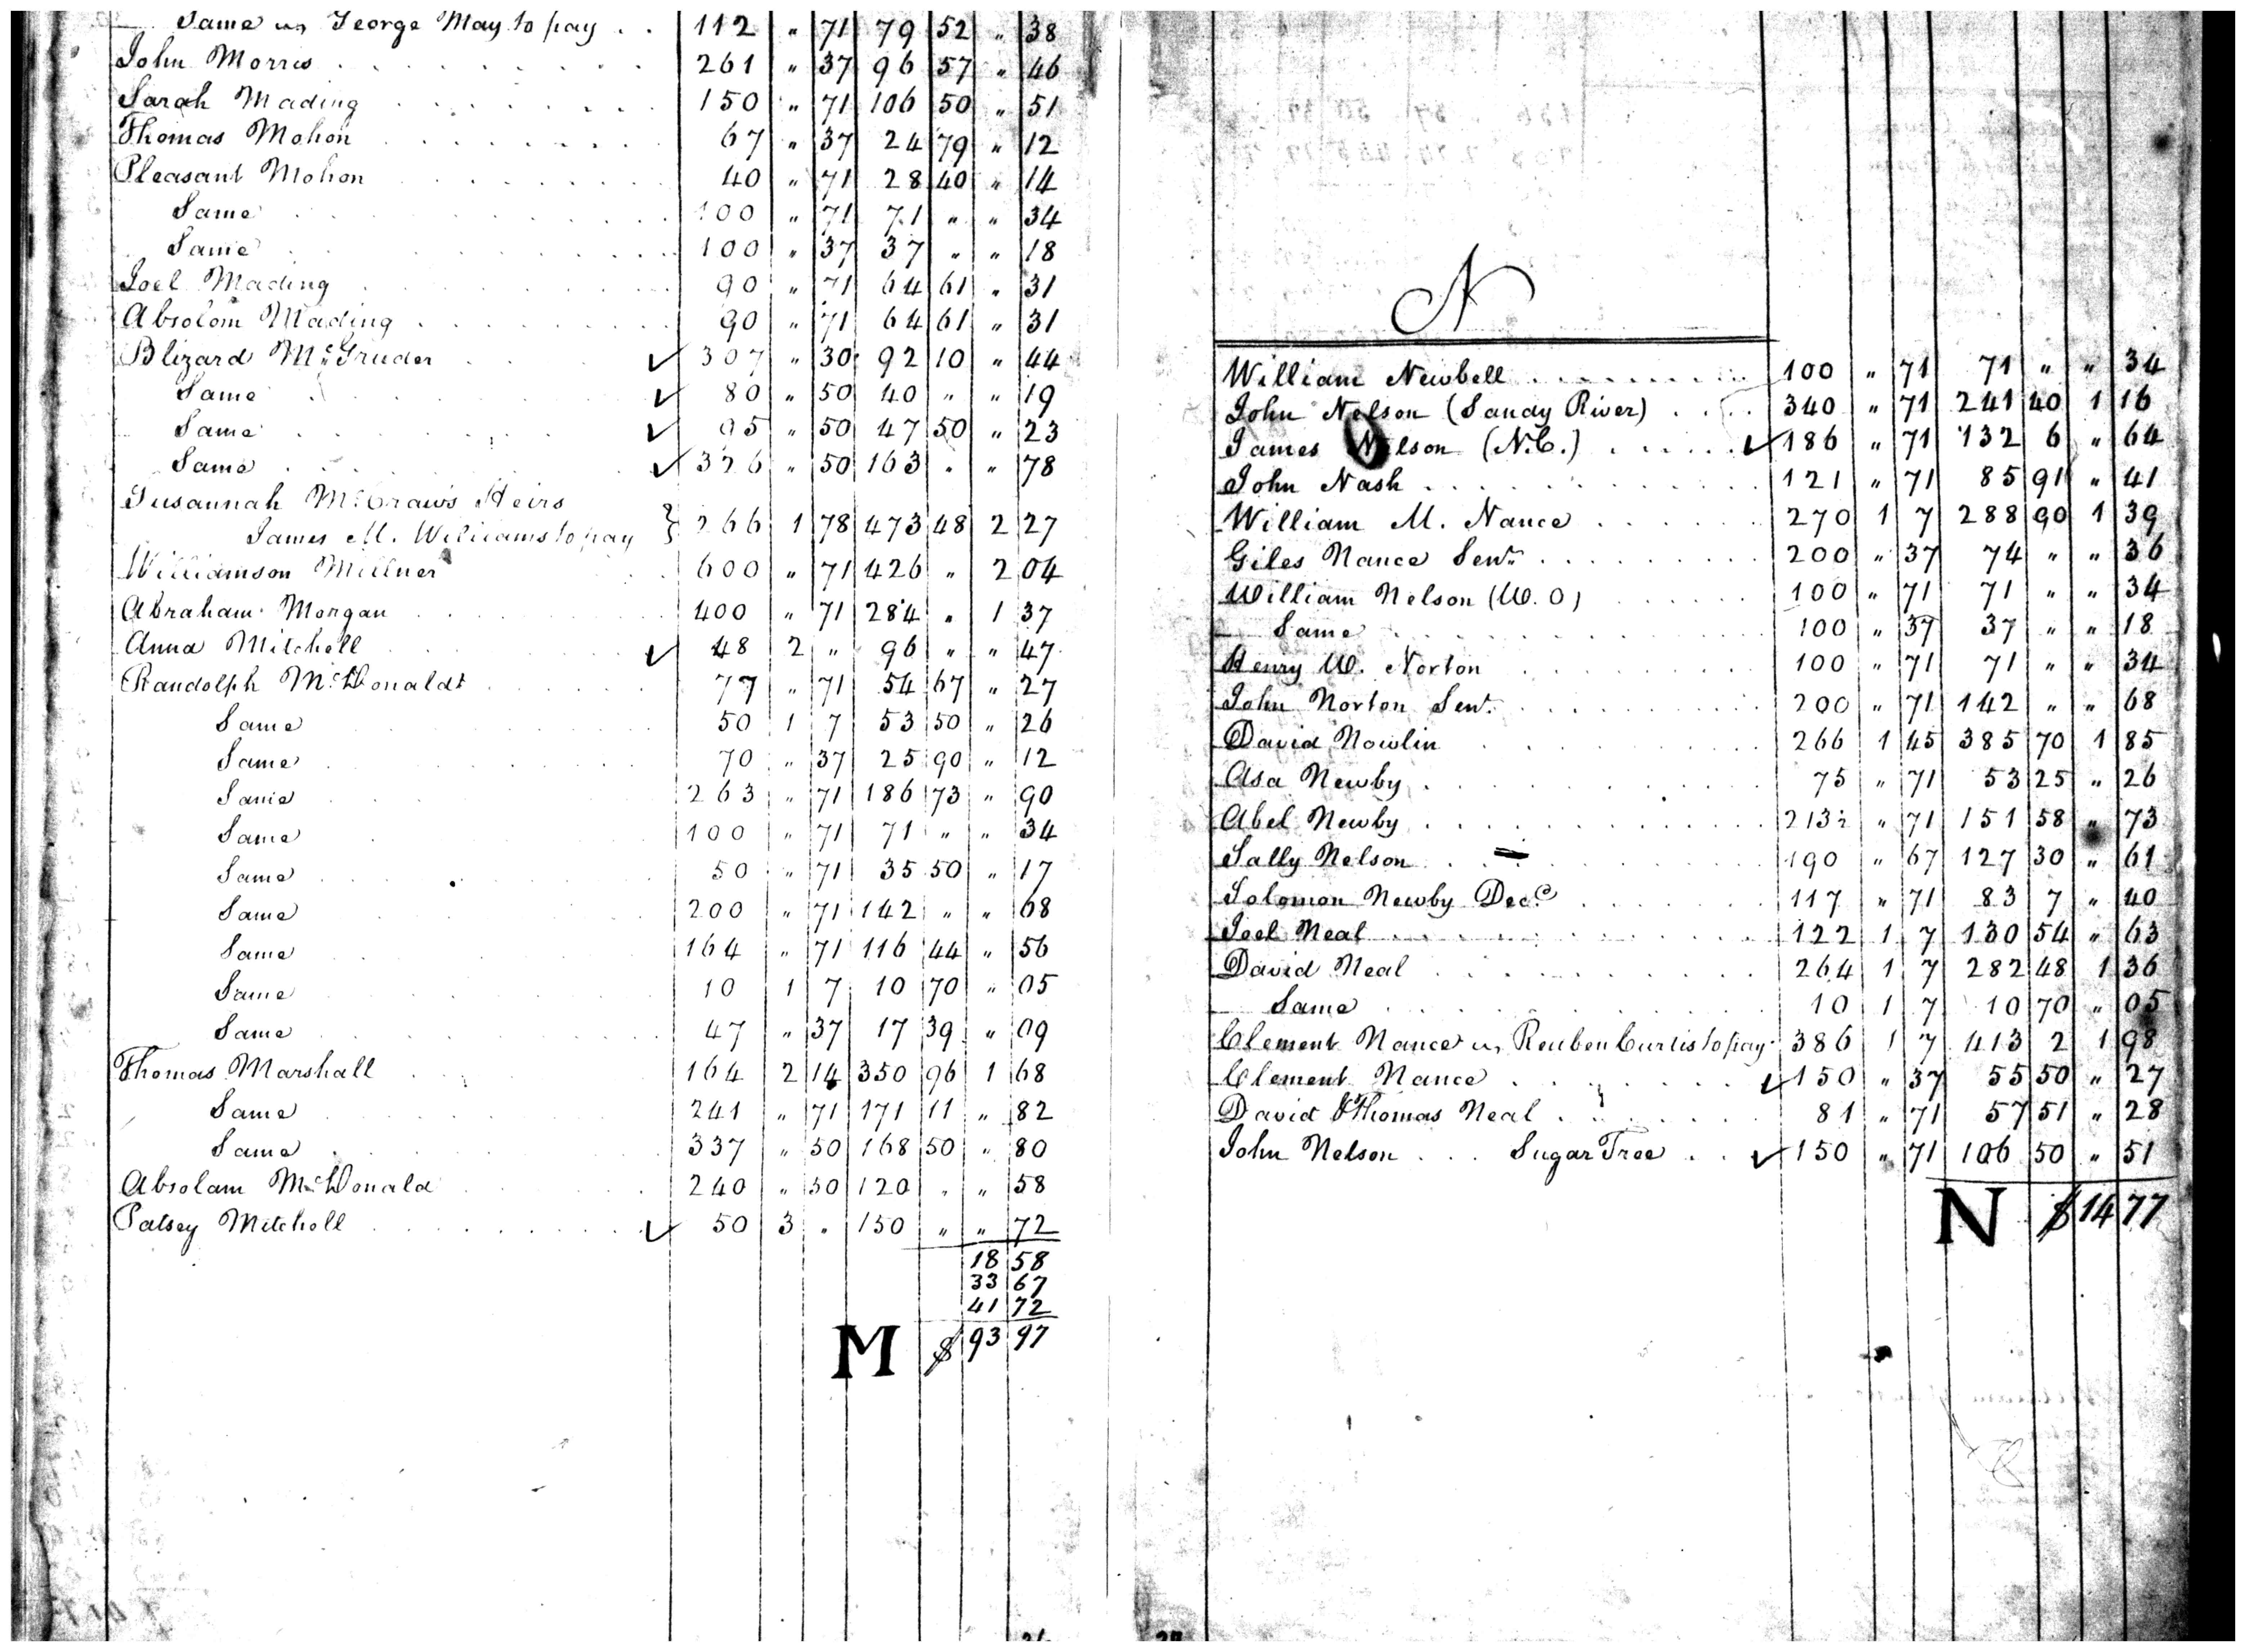 Same in George May to pay . . 112 " 71 79 52 " 38
John Morris 261 " 37 96 57 " 46
Sarah Mading 150 " 71 106 50 " 51
Thomas Mohon 67 " 37 24 79 " 12
Pleasant Mohon 40 " 71 28 40 " 14
Same 100 " 71 71 " " 34
Same 100 " 37 37 " " 18
Joel Mading 90 " 71 64 61 " 31
Absolom Mading 90 " 71 64 61 " 31
Blizard McGruder ✓ 307 " 30 92 10 " 44
Same ✓ 80 " 50 40 " " 19
Same ✓ 95 " 50 47 50 " 23
Same ✓ 326 " 50 163 " " 78
Susannah McCraw's Heirs
James M. Williams to pay } 266 1 78 473 48 2 27
Williamson Millner 600 " 71 426 " 2 04
Abraham Morgan 400 " 71 284 " 1 37
Anna Mitchell ✓ 48 2 " 96 " " 47
Randolph McDonald 77 " 71 54 67 " 27
Same 50 1 7 53 50 " 26
Same 70 " 37 25 90 " 12
Same 263 " 71 186 73 " 90
Same 100 " 71 71 " " 34
Same 50 " 71 35 50 " 17
Same 200 " 71 142 " " 68
Same 164 " 71 116 44 " 56
Same 10 1 7 10 70 " 05
Same 47 " 37 17 39 " 09
Thomas Marshall 164 2 14 350 96 1 68
Same 241 " 71 171 11 " 82
Same 337 " 50 168 50 " 80
Absolam McDonald 240 " 50 120 " " 58
Patsey Mitchell ✓ 50 3 " 150 " " 72
18 58
33 67
41 72
M $ 93 97
N
William Newbell 100 " 71 71 " " 34
John Nelson (Sandy River) 340 " 71 241 40 1 16
James Nelson (N.C.) ✓ 186 " 71 132 6 " 64
John Nash 121 " 71 85 91 " 41
William M. Nance 270 1 7 288 90 1 39
Giles Nance Senr. 200 " 37 74 " " 36
William Nelson (W.O) 100 " 71 71 " " 34
Same 100 " 37 37 " " 18
Henry W. Norton 100 " 71 71 " " 34
John Norton Senr. 200 " 71 142 " " 68
David Nowlin 266 1 45 385 70 1 85
Asa Newby 75 " 71 53 25 " 26
Abel Newby 213½ " 71 151 58 " 73
Sally Nelson 190 " 67 127 30 " 61
Solomon Newby Decd 117 " 71 83 7 " 40
Joel Neal 122 1 7 130 54 " 63
David Neal 264 1 7 282 48 1 36
Same 10 1 7 10 70 " 05
Clement Nance in Reuben Curtis to pay 386 1 7 413 2 1 98
Clement Nance ✓ 150 " 37 55 50 " 27
David & Thomas Neal 81 " 71 57 51 " 28
John Nelson . . . Sugar Tree . . ✓ 150 " 71 106 50 " 51
N $ 14 77